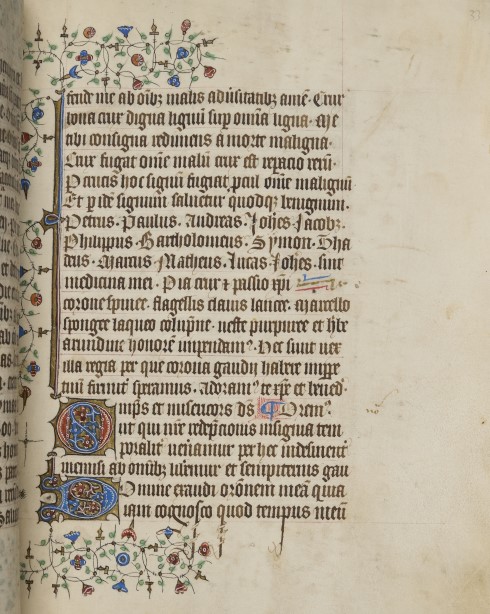 fende me ab oīb; malis adūsitatib; amē. Crux
bona crux digna lignū sup omīa ligna. Me
tibi consigna redimens a morte maligna.
Crux fugat omē malū crux est repacio rerū.
P crucis hoc signū fugiat pcul omē malignū
Et p idē signum saluetur quodq; benignum.
Petrus. Paulus. Andreas. Johēs. Jacob;.
Philippus. Bartholomeus. Symon. Tha
deus. Marcus. Matheus. Lucas. Johēs. sint
medicina mei. Pia crux ⁊ passio xp̄i
corone spinee. flagellis clauis lancee. Marcello
spongee laqueo colūpne. ueste purpuree et
arundine honorē impendamꝰ. Hec sunt uex
illa regia per que corona gaudij habere
tuū firmit speramus. Adoramꝰ te xp̄e et bened.
O mp̄s et misericors ds̄ Oremꝰ.
ut qui nr̄e redēpcionis insignia tem
poralit ueneramur per hec indesinent
muniti ab omīb; et sempiternis gau
Domine exaudi orōnem meā quia
iam cognosco quod tempus meum